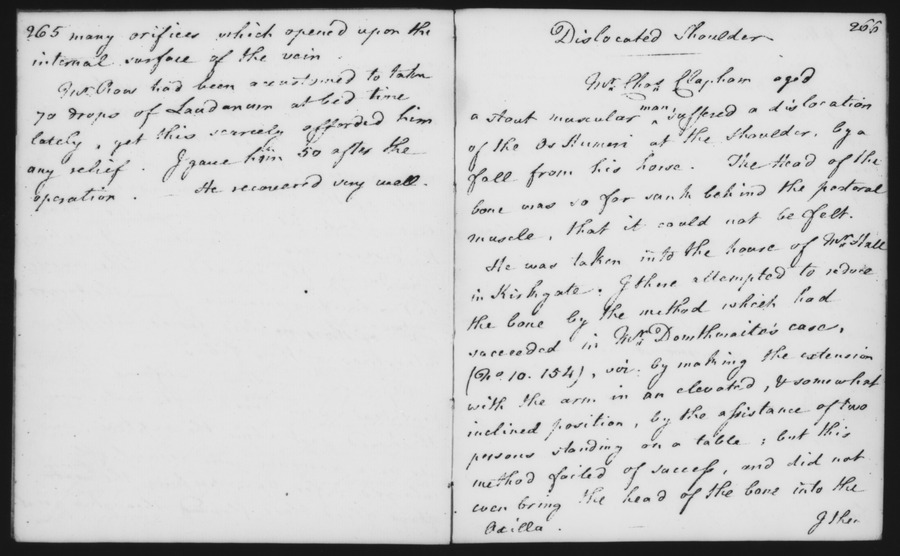 265 many orifices which opened upon the
internal surface of the vein.
Mr. Row had been accustomed to take
70 drops of Laudanum at bed time
lately, yet this scarcely afforded him
any relief. I gave him 50 after the
operation. He recovered very well.
266
Dislocated Shoulder
Mr. Chas. Clapham aged
a stout muscular man, suffered a dislocation
of the Os Humeri at the shoulder, by a
fall from his horse. The Head of the
bone was so far sunk behind the pectoral
muscle, that it could not be felt.
He was taken into the house of Mr.
in Kirkgate. I there attempted to reduce
the bone by the method which had
succeeded in Mr. Dowthwaite's case,
(No. 10. 154), viz. by making the extension
with the arm in an elevated, & somewhat
inclined position, by the assistance of two
persons standing on a table; but this
method failed of success, and did not
even bring the head of the bone into the
Axilla.
I then